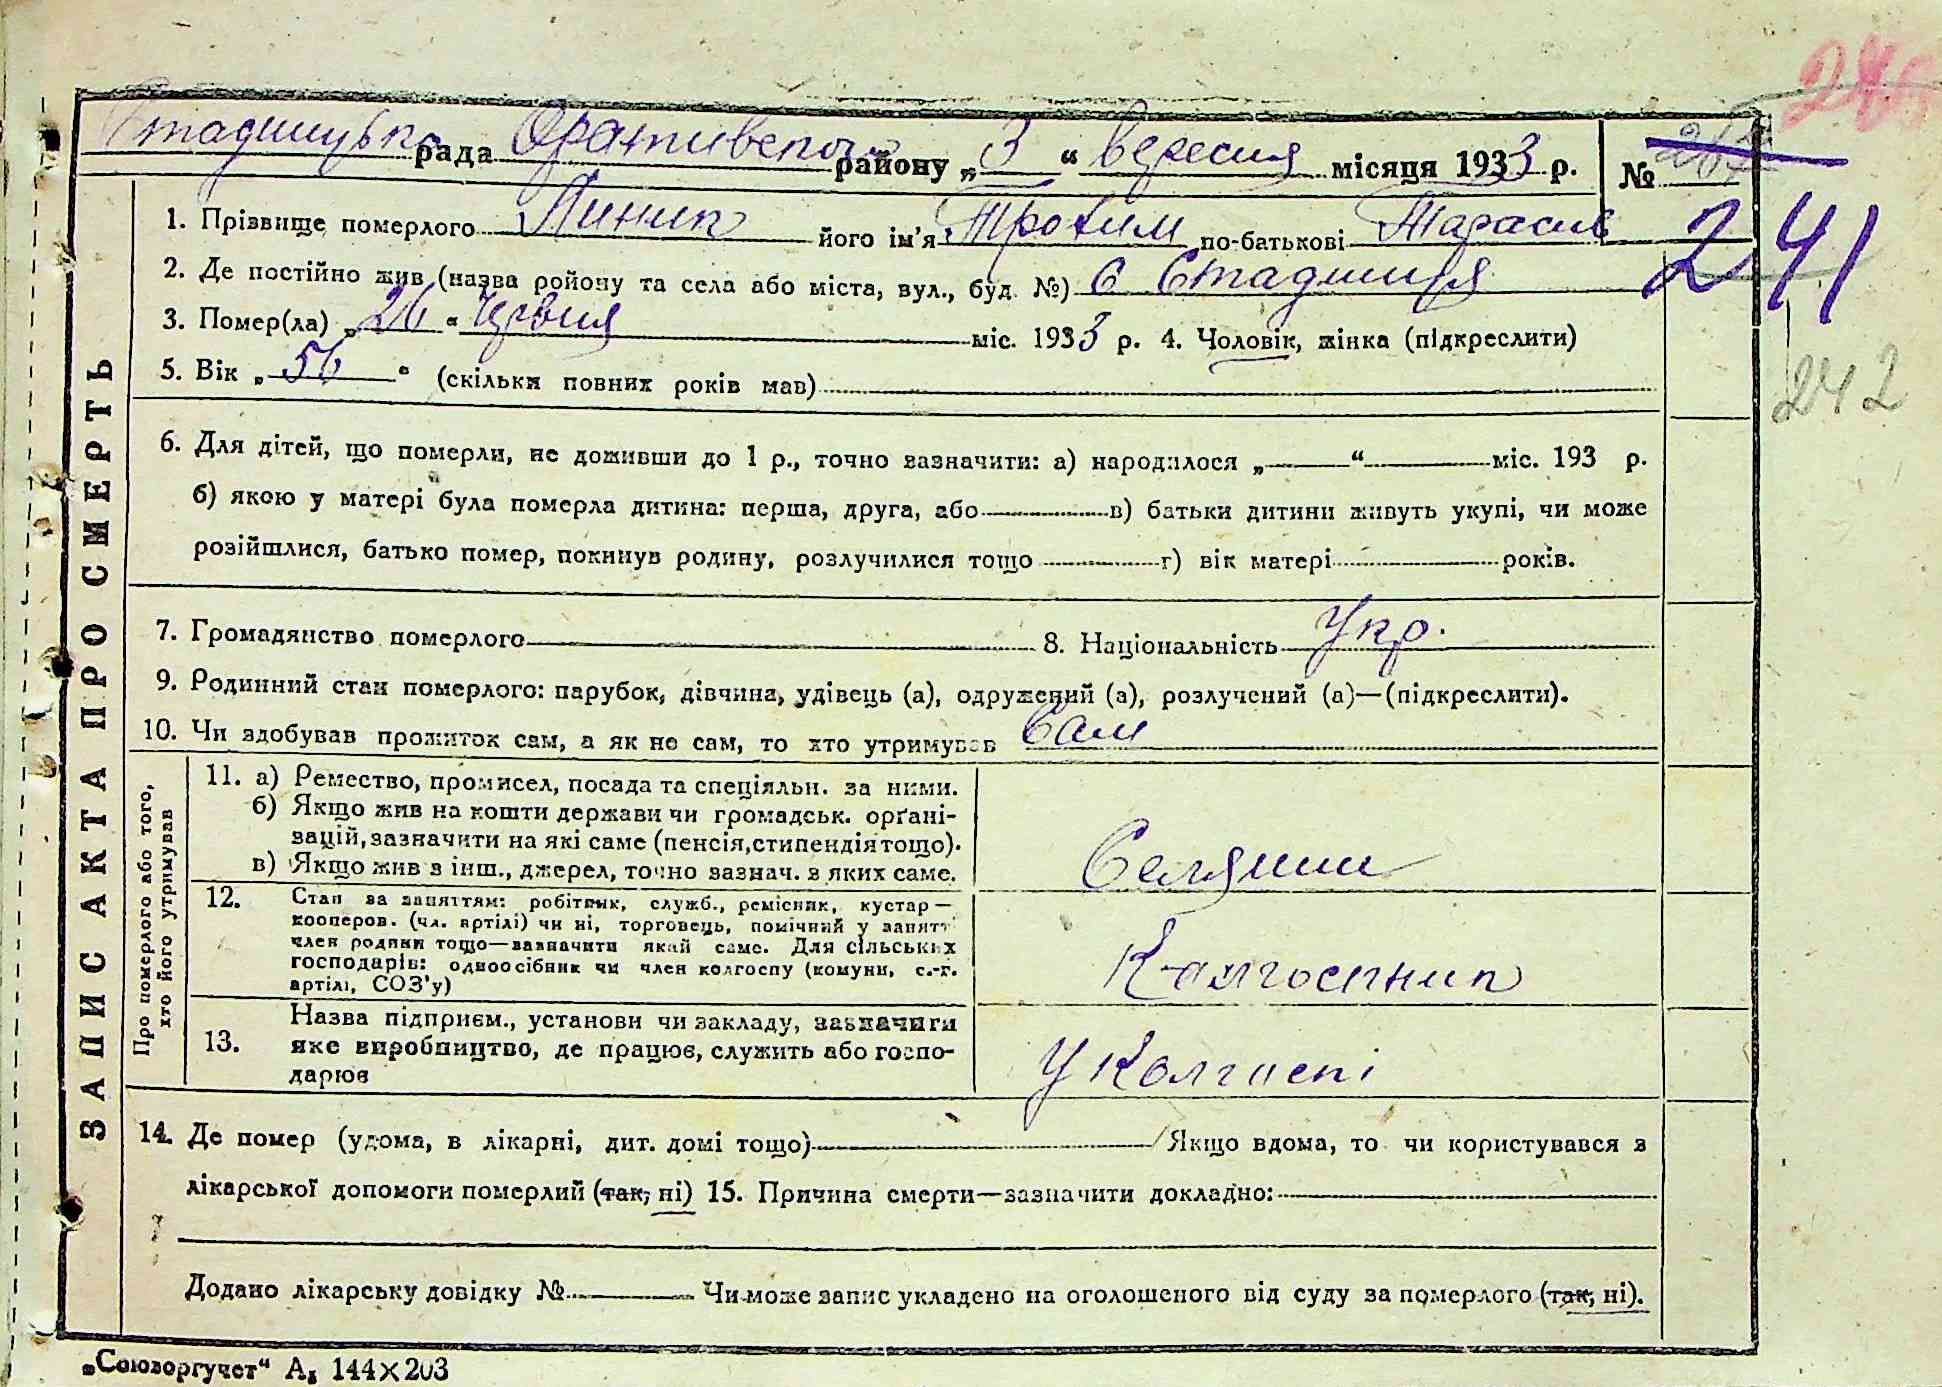 240
Стадницька рада Оратівського району „3“ Вересня місяця 1933 р. № 
241
1. Прізвище померлого Линик його ім'я Трохим по-батькові Тарасів
2. Де постійно жив (назва ройону та села або міста, вул., буд. №) С Стадниця
3. Помер(ла) „26“ Червня міс. 1933 р. 4. Чоловік, жінка (підкреслити)
242
5. Вік „56“ (скільки повних років мав)
6. Для дітей, що померли, не доживши до 1 р., точно зазначити: а) народилося „—“ міс. 193 р.
б) якою у матері була померла дитина: перша, друга, або в) батьки дитини живуть укупі, чи може
розійшлися, батько помер, покинув родину, розлучилися тощо г) вік матері років.
7. Громадянство померлого 8. Національність Укр.
9. Родинний стан померлого: парубок, дівчина, удівець (а), одружений (а), розлучений (а)—(підкреслити).
10. Чи здобував прожиток сам, а як не сам, то хто утримував Сам
ЗАПИС АКТА ПРО СМЕРТЬ
Про померлого або того,
хто його утримував
11. а) Ремество, промисел, посада та спеціяльн. за ними.
б) Якщо жив на кошти держави чи громадськ. орґані-
зацій, зазначити на які саме (пенсія, стипендія тощо).
в) Якщо жив з інш., джерел, точно зазнач. з яких саме.
Селянин
12. Стан за заняттям: робітник, служб., ремісник, кустар—
кооперов. (чл. артілі) чи ні, торговець, помічний у занятт
член родини тощо—зазначити який саме. Для сільських
господарів: одноосібник чи член колгоспу (комуни, с.-г.
артілі, СОЗ'у)
Колгоспник
13. Назва підприєм., установи чи закладу, зазначити
яке виробництво, де працює, служить або госпо-
дарює
У Колгоспі
14. Де помер (удома, в лікарні, дит. домі тощо) Якщо вдома, то чи користувався з
лікарської допомоги померлий (так, ні) 15. Причина смерти—зазначити докладно:
Додано лікарську довідку № Чи може запис укладено на оголошеного від суду за померлого (так, ні).
„Союзоргучет“ А₅ 144×203